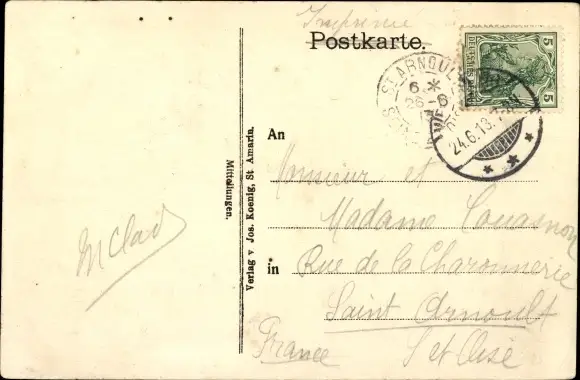 Imprimé
Postkarte.
DEUTSCHES REICH
5 5
ST ARNOUL
6 *
26 - 6
24.6.13.
An
Monsieur et
Madame Couasnon
in Rue de la Charonnerie
Saint Arnoult
France S et Oise
M Clad
Mitteilungen.
Verlag v Jos. Koenig, St Amarin.